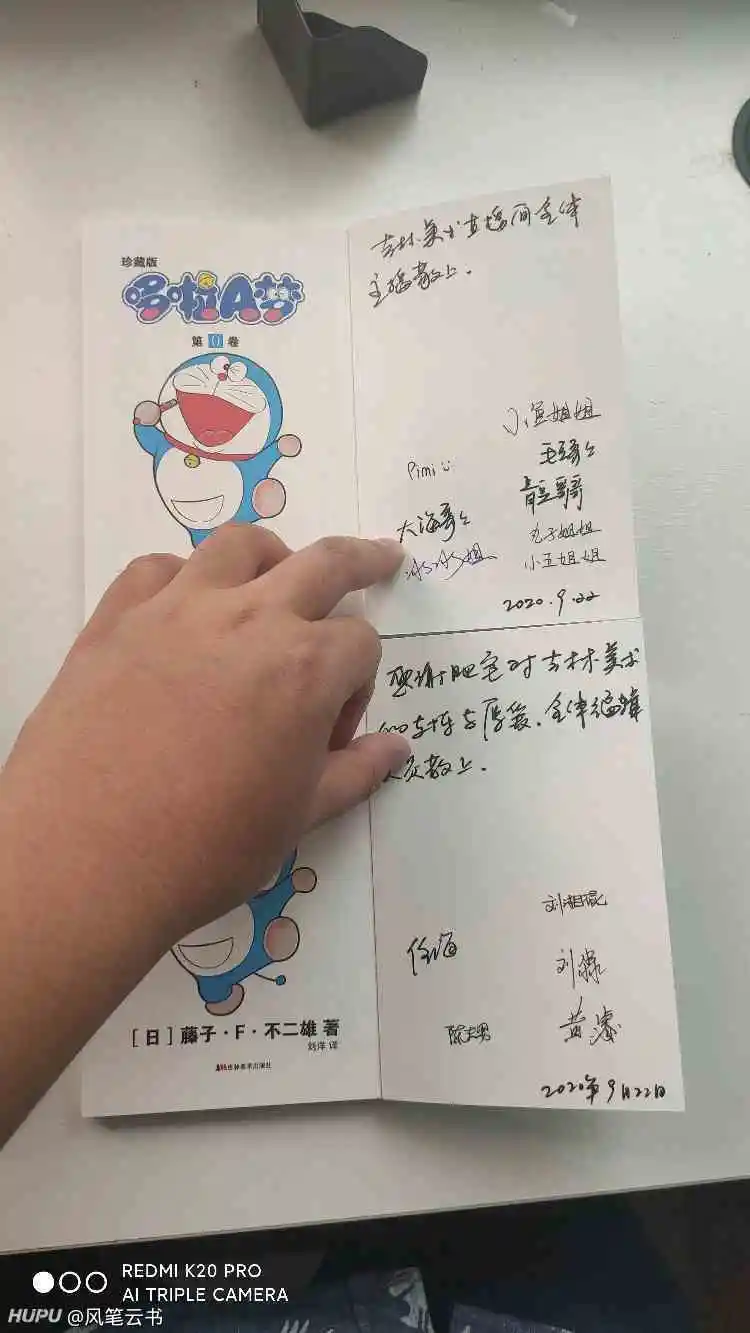 珍藏版
哆啦A梦
第0卷
[日]藤子·F·不二雄 著
刘洋 译
吉林美术出版社
吉林美术直播间全体
主播敬上.
小鱼姐姐
Pimi
毛哥哥
大海哥哥
青豆哥哥
冰冰姐
丸子姐姐
小五姐姐
2020.9.22
感谢肥宅对吉林美术
的支持与厚爱.全体编辑
人员敬上.
刘湘琨
任海
刘
黄
2020年9月22日
REDMI K20 PRO
AI TRIPLE CAMERA
HUPU @风笔云书